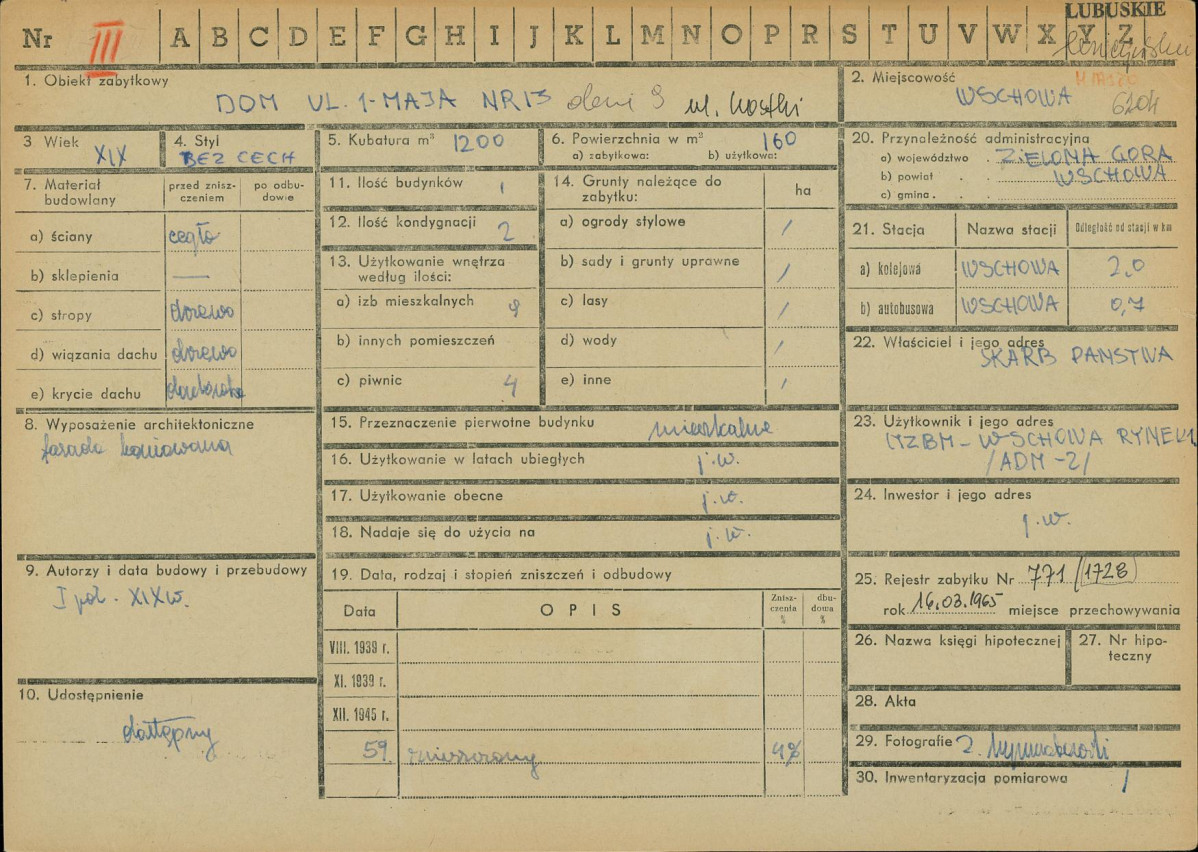 LUBUSKIE
Nr III A B C D E F G H I J K L M N O P R S T U V W X Y Z
1. Obiekt zabytkowy
DOM UL. 1-MAJA NR 13 ul. Kostki
2. Miejscowość
WSCHOWA
6204
3 Wiek
XIX
4. Styl
BEZ CECH
5. Kubatura m³ 1200
6. Powierzchnia w m² 160
a) zabytkowa: b) użytkowa:
7. Materiał budowlany
przed znisz-czeniem
po odbu-dowie
a) ściany cegła
b) sklepienia —
c) stropy drewno
d) wiązania dachu drewno
e) krycie dachu dachówka
8. Wyposażenie architektoniczne
fasada boniowana
9. Autorzy i data budowy i przebudowy
I poł. XIX w.
10. Udostępnienie
dostępny
11. Ilość budynków 1
12. Ilość kondygnacji 2
13. Użytkowanie wnętrza
według ilości:
a) izb mieszkalnych 9
b) innych pomieszczeń
c) piwnic 4
14. Grunty należące do
zabytku:
ha
a) ogrody stylowe /
b) sady i grunty uprawne /
c) lasy /
d) wody /
e) inne /
15. Przeznaczenie pierwotne budynku mieszkalne
16. Użytkowanie w latach ubiegłych j.w.
17. Użytkowanie obecne j.w.
18. Nadaje się do użycia na j.w.
19. Data, rodzaj i stopień zniszczeń i odbudowy
Data OPIS Znisz-czenia % dbu-dowa %
VIII. 1939 r.
XI. 1939 r.
XII. 1945 r.
59. zniszczony 4%
20. Przynależność administracyjna
a) województwo ZIELONA GORA
b) powiat WSCHOWA
c) gmina
21. Stacja Nazwa stacji Odległość od stacji w km
a) kolejowa WSCHOWA 2,0
b) autobusowa WSCHOWA 0,7
22. Właściciel i jego adres
SKARB PANSTWA
23. Użytkownik i jego adres
MZBM - WSCHOWA RYNEK 1
/ADM-2/
24. Inwestor i jego adres
j.w.
25. Rejestr zabytku Nr 771 (1728)
rok 16.03.1965 miejsce przechowywania
26. Nazwa księgi hipotecznej
27. Nr hipo-
teczny
28. Akta
29. Fotografie
30. Inwentaryzacja pomiarowa /